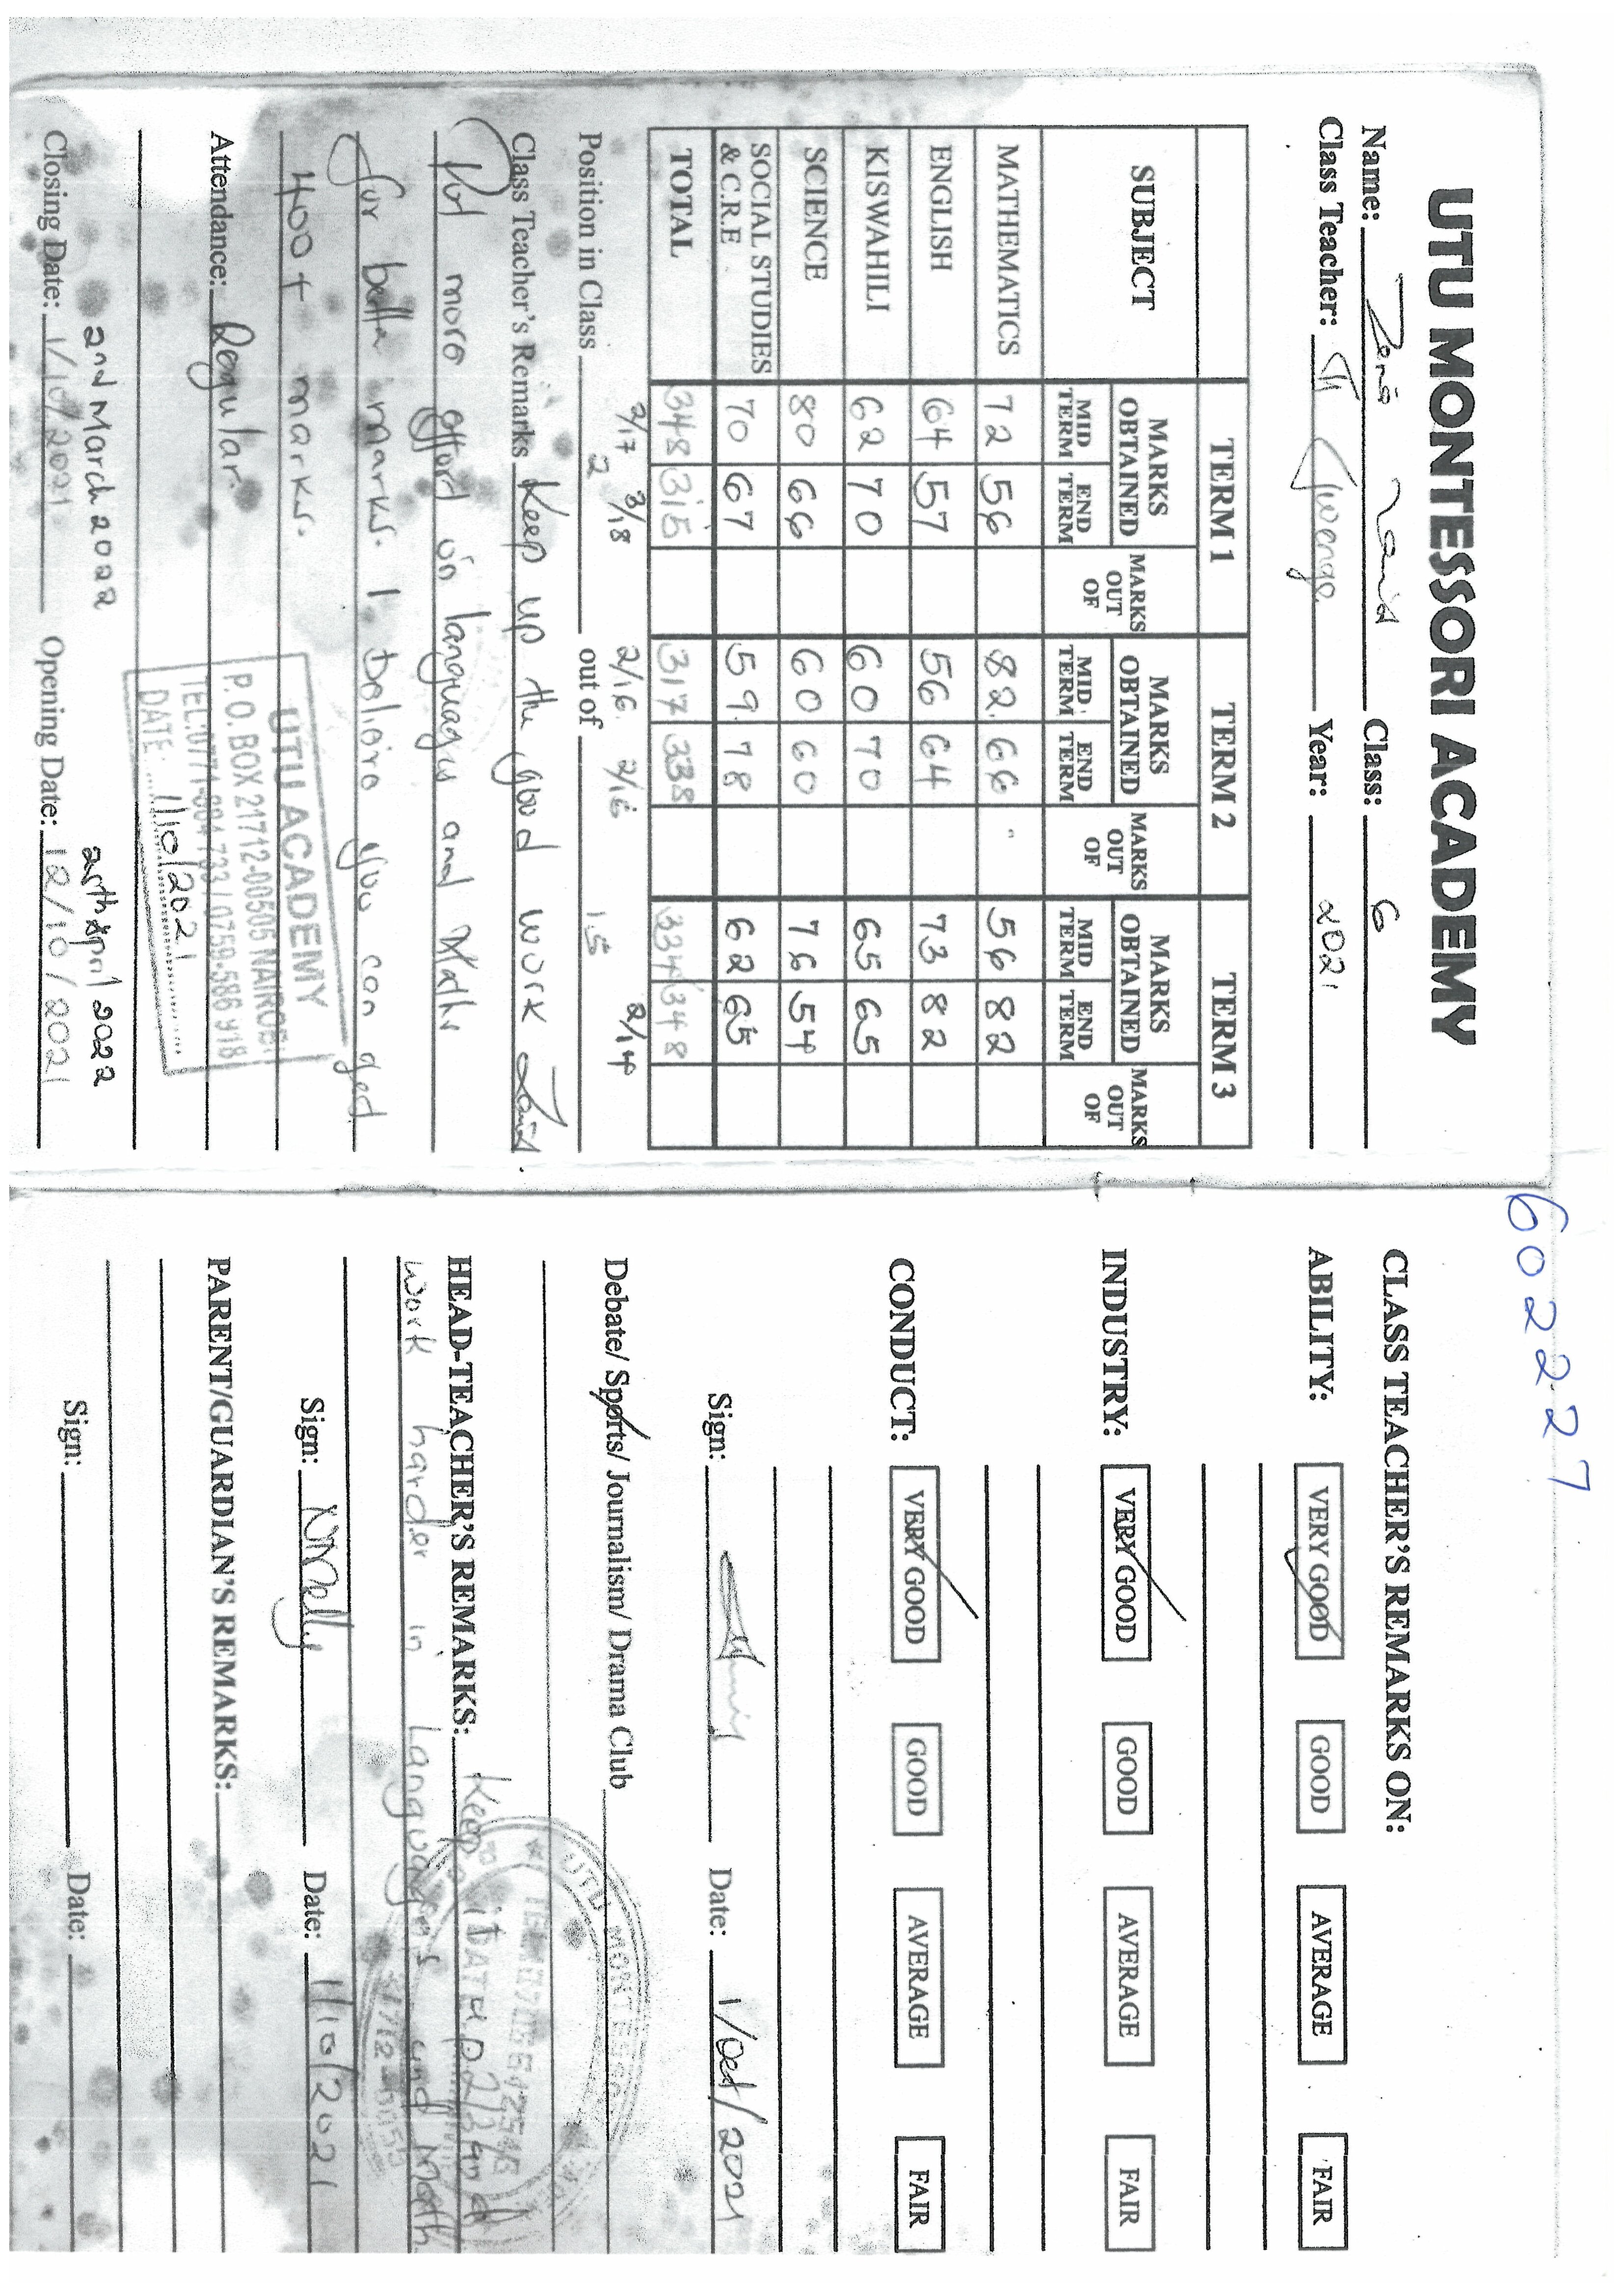 60227
UTU MONTESSORI ACADEMY
Name: Class: 6
Class Teacher: Tr Year: 2021
TERM 1 TERM 2 TERM 3
SUBJECT MARKS OBTAINED MARKS OUT OF MARKS OBTAINED MARKS OUT OF MARKS OBTAINED MARKS OUT OF
MID TERM END TERM MID TERM END TERM MID TERM END TERM
MATHEMATICS 72 56 82 66 56 82
ENGLISH 64 57 56 64 73 82
KISWAHILI 62 70 60 70 65 65
SCIENCE 80 66 60 60 76 54
SOCIAL STUDIES & C.R.E 70 67 59 78 62 65
TOTAL 348 315 317 338 334 348
2/17 3/18 2/16 2/16 2/14
Position in Class 2 out of 15
Class Teacher's Remarks Keep up the good work
Put more efford in languages and Maths
for better marks. I believe you can ged
400+ marks.
Attendance: Regular
UTU ACADEMY
P.O. BOX 21712-00505 NAIROBI
TEL:0771-884 733 / 0759-586 918
DATE: 1/10/2021
2nd March 2022 25th April 2022
Closing Date: 1/10/2021 Opening Date: 12/10/2021
CLASS TEACHER'S REMARKS ON:
ABILITY: VERY GOOD GOOD AVERAGE FAIR
INDUSTRY: VERY GOOD GOOD AVERAGE FAIR
CONDUCT: VERY GOOD GOOD AVERAGE FAIR
Sign: Date: 1/Oct/2021
Debate/ Sports/ Journalism/ Drama Club
UTU MONTESSORI
HEAD-TEACHER'S REMARKS: Keep it up and
work harder in Languages and Math
Sign: Date: 1/10/2021
PARENT/GUARDIAN'S REMARKS:
Sign: Date: